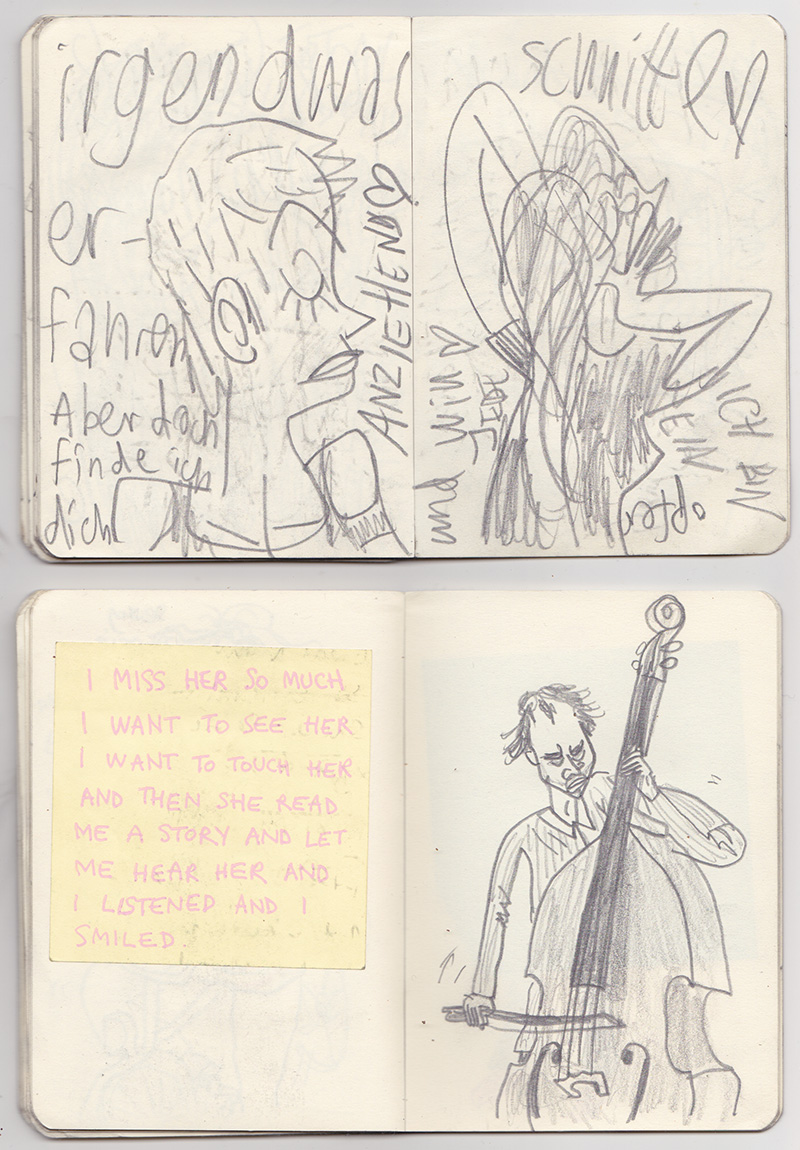 irgendwas
er-
fahren
Aber doch
finde ich
dich
ANZIEHEND
und
JEDE
ICH
BIN
EIN
opfer
I MISS HER SO MUCH
I WANT TO SEE HER
I WANT TO TOUCH HER
AND THEN SHE READ
ME A STORY AND LET
ME HEAR HER AND
I LISTENED AND I
SMILED.